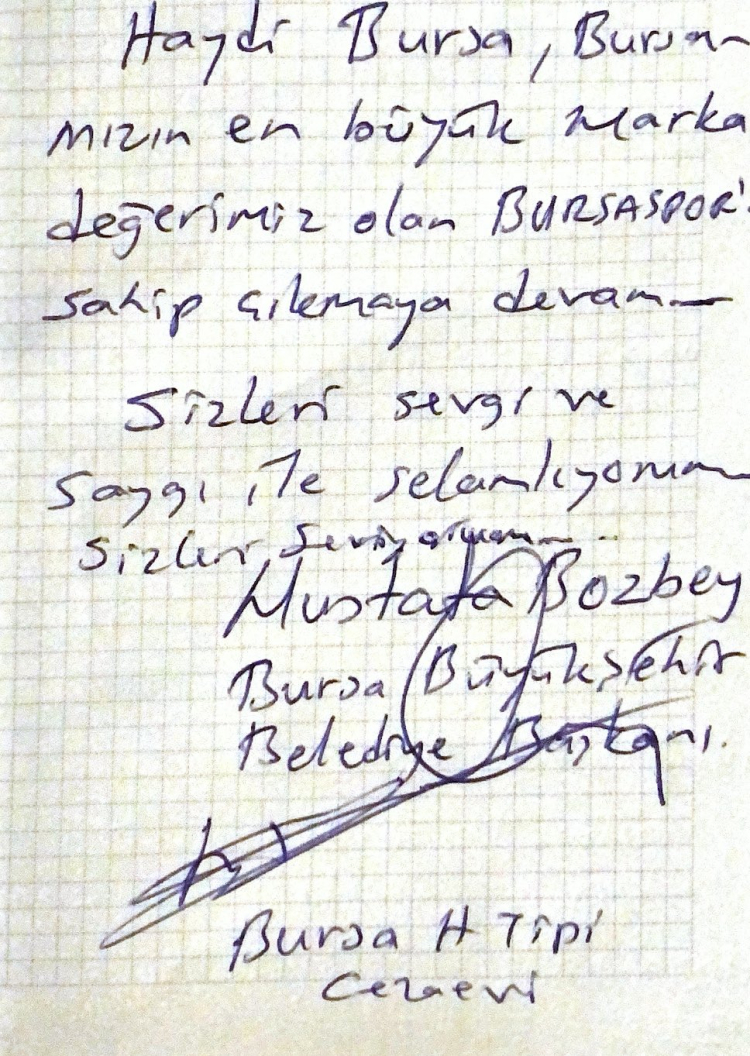 Haydi Bursa, Bursa-
mızın en büyük marka
değerimiz olan BURSASPOR'
sahip çıkmaya devam
Sizleri sevgi ve
saygı ile selamlıyorum
Sizleri seviyorum...
Mustafa Bozbey
Bursa Büyükşehir
Belediye Başkanı.
Bursa H Tipi
Cezaevi